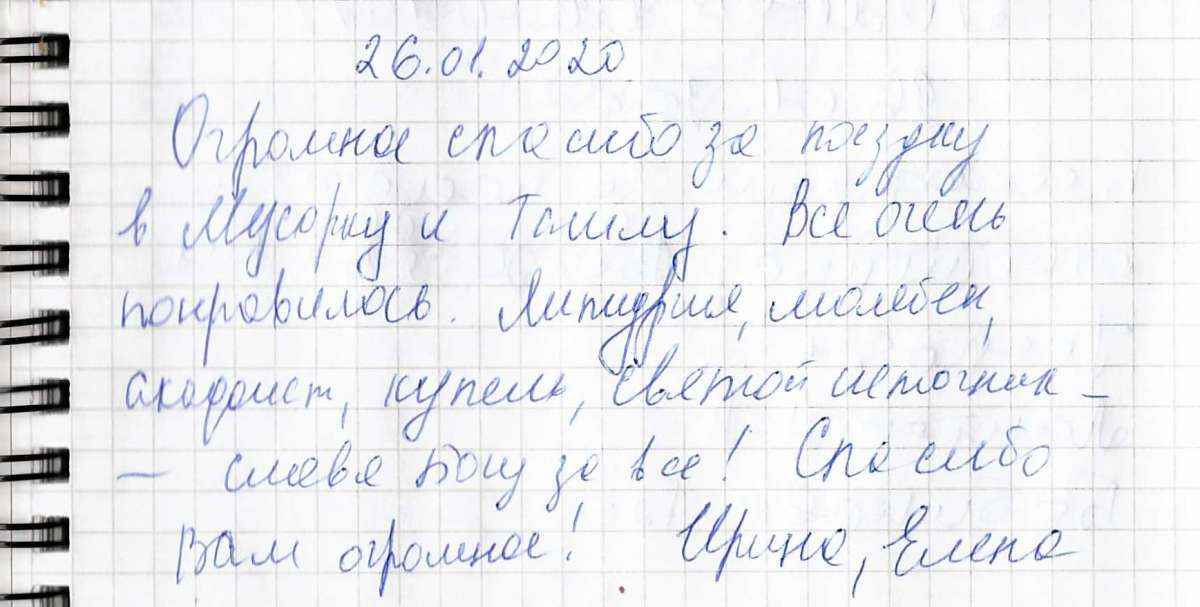 26.01.2020
Огромное спасибо за поездку
в Мусорку и Ташлу. Все очень
понравилось. Литургия, молебен,
акафист, купель, святой источник -
- слава Богу за все! Спасибо
Вам огромное! Ирина, Елена